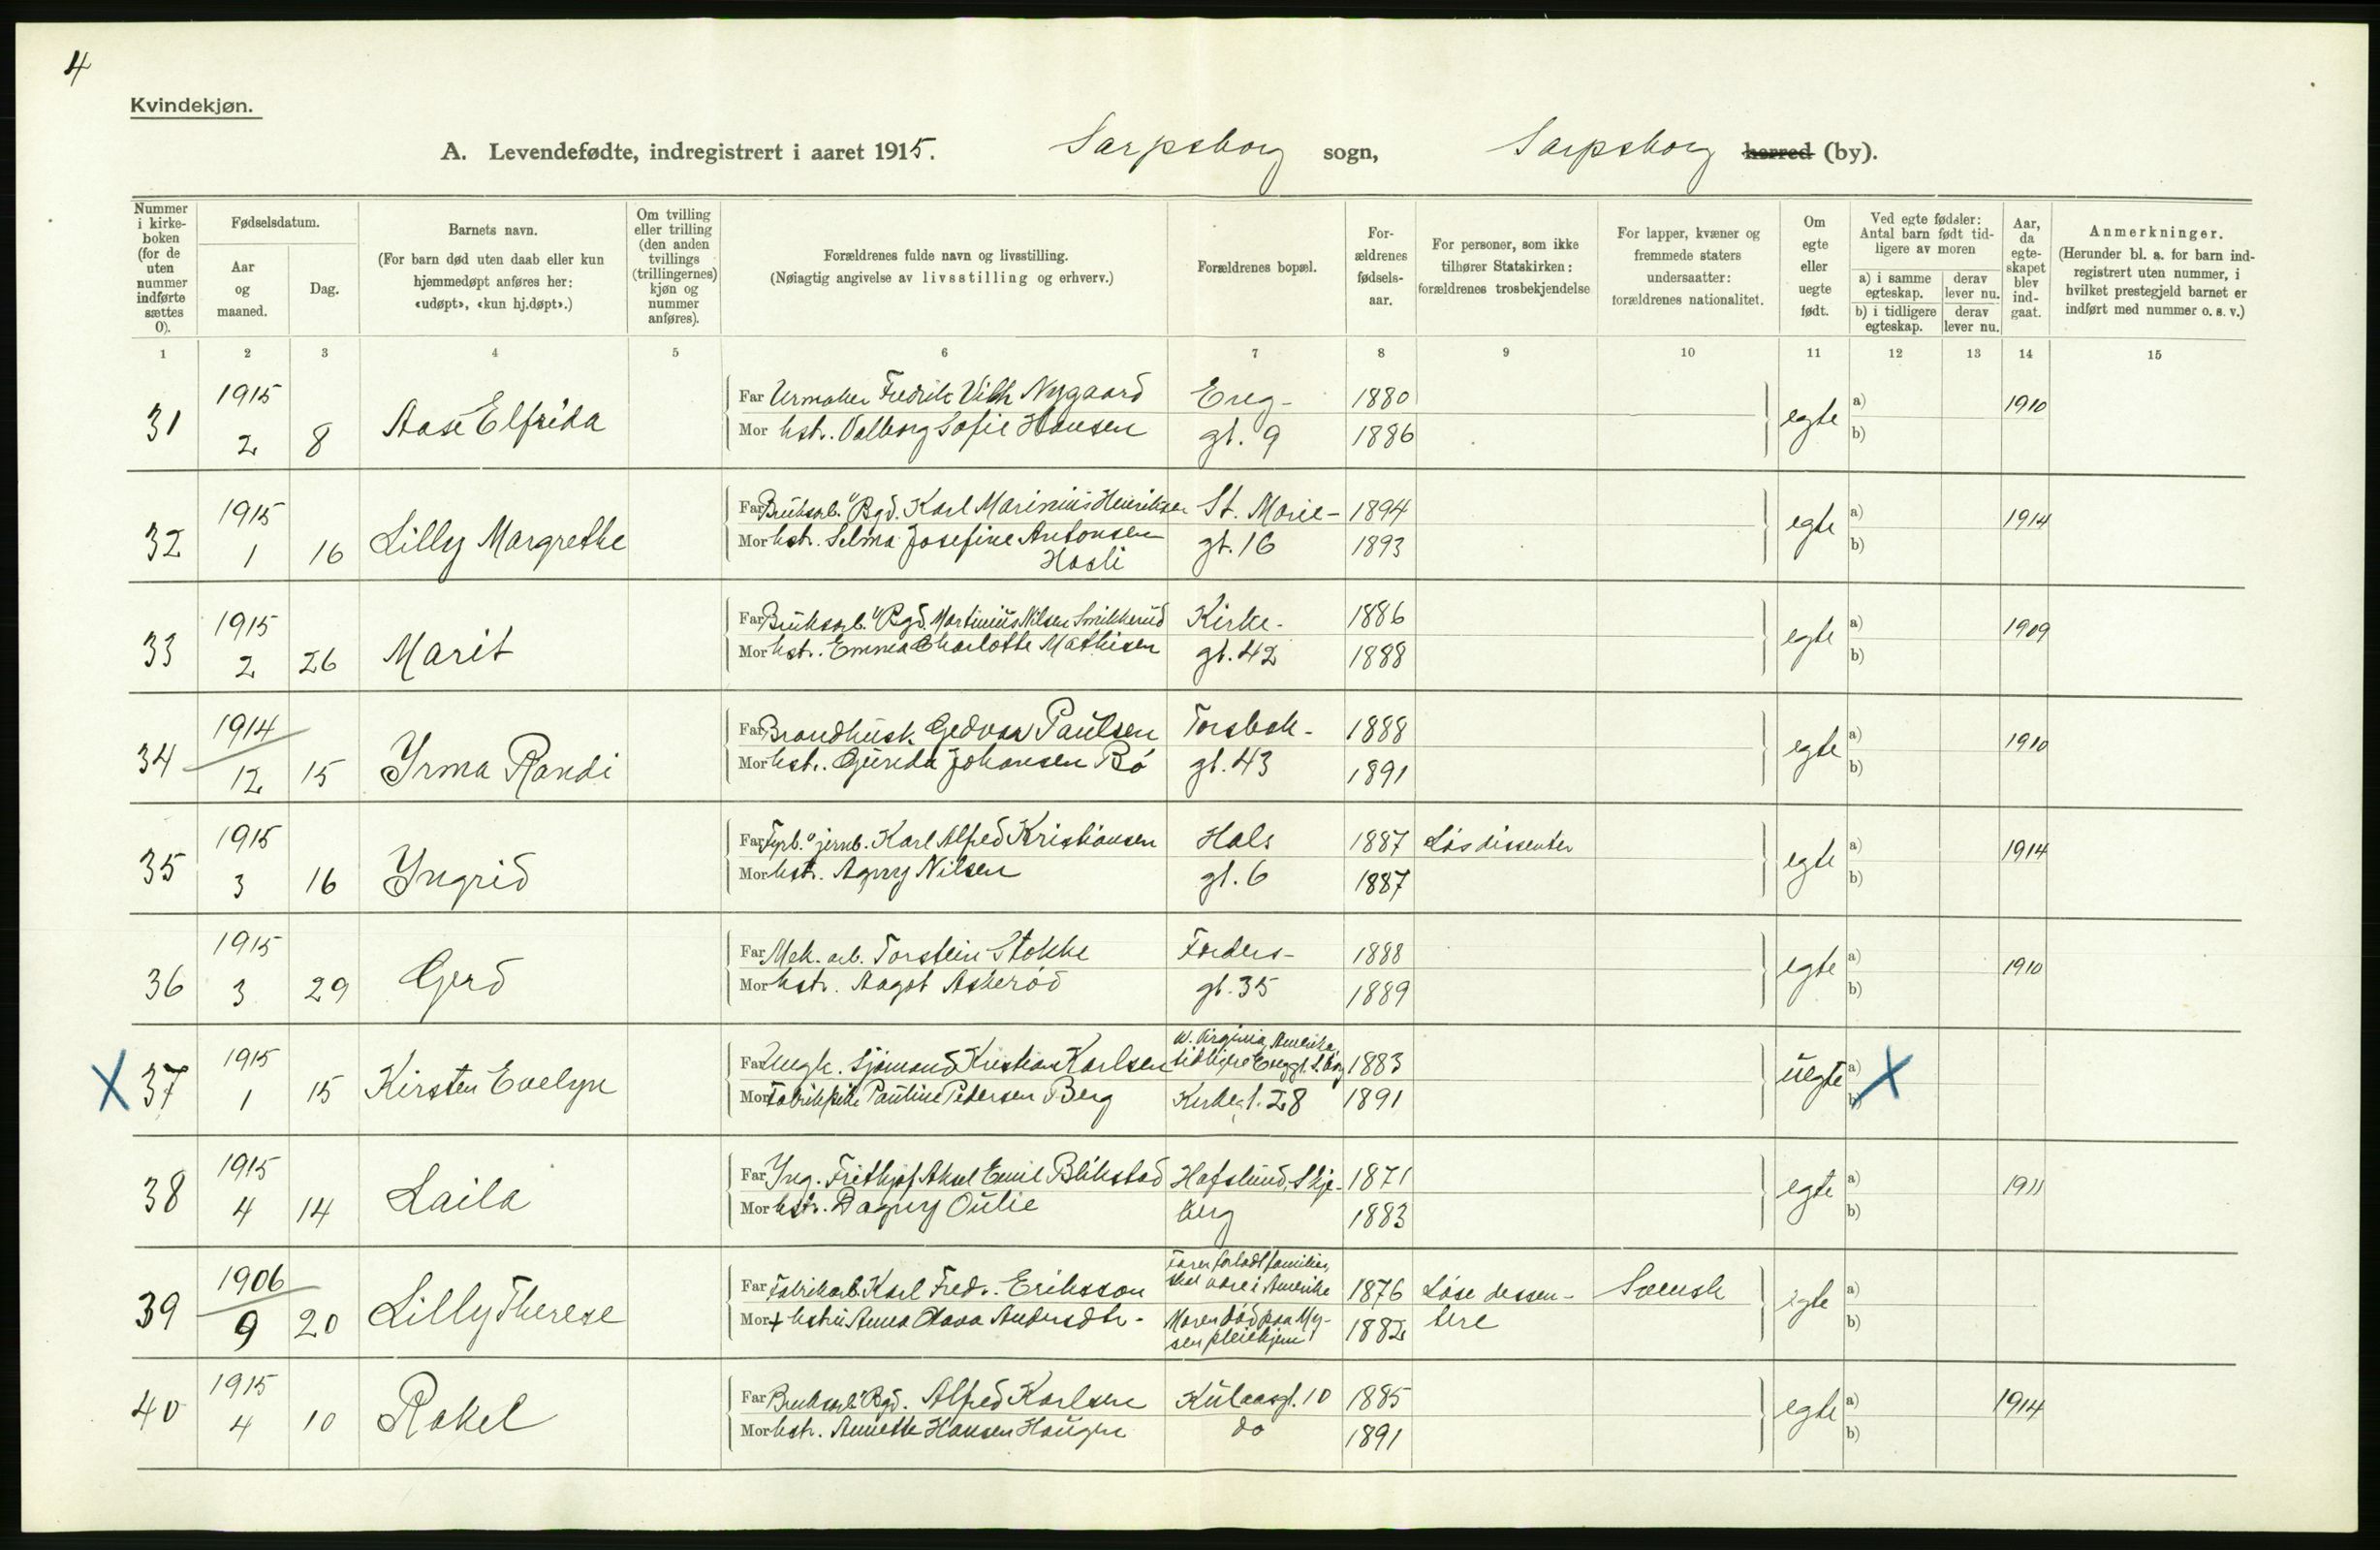 4
Kvindekjøn.
A. Levendefødte, indregistrert i aaret 1915. Sarpsborg sogn, Sarpsborg herred (by).
Nummer i kirke-boken (for de uten nummer indførte sættes 0).
Fødselsdatum.
Aar og maaned.
Dag.
Barnets navn.
(For barn død uten daab eller kun hjemmedøpt anføres her: «udøpt», «kun hj.døpt».)
Om tvilling eller trilling (den anden tvillings (trillingernes) kjøn og nummer anføres).
Forældrenes fulde navn og livsstilling.
(Nøiagtig angivelse av livsstilling og erhverv.)
Forældrenes bopæl.
For-ældrenes fødsels-aar.
For personer, som ikke tilhører Statskirken: forældrenes trosbekjendelse
For lapper, kvæner og fremmede staters undersaatter: forældrenes nationalitet.
Om egte eller uegte født.
Ved egte fødsler: Antal barn født tid-ligere av moren
a) i samme egteskap. derav lever nu.
b) i tidligere egteskap. derav lever nu.
Aar, da egte-skapet blev ind-gaat.
Anmerkninger.
(Herunder bl. a. for barn ind-registrert uten nummer, i hvilket prestegjeld barnet er indført med nummer o. s. v.)
1 2 3 4 5 6 7 8 9 10 11 12 13 14 15
1915 Far Urmaker Fredrik Vilh Nygaard Eng- 1880 a) 1910
31 2 8 Aase Elfrida Mor hstr. Valborg Sofie Hansen gt. 9 1886 egte b)
1915 Far Bruksarb. Bgd. Karl Marinius Henriksen St. Marie- 1894 a) 1914
32 1 16 Lilly Margrethe Mor hstr. Selma Josefine Antonsen gt. 16 1893 egte b)
Hasli
1915 Far Bruksarb. Bgd. Martinius Nilsen Kirke- 1886 a) 1909
33 2 26 Marit Mor hstr. Emma Charlotte Mathisen gt. 42 1888 egte b)
1914 Far Gedvar Paulsen Torsbek- 1888 a) 1910
34 12 15 Yrma Randi Mor hstr. Gunda Johansen Bø gt. 43 1891 egte b)
1915 Far Fyrb. v jernb. Karl Alfred Kristiansen Hals 1887 Løsdissenter a) 1914
35 3 16 Yngrid Mor hstr. Agny Nilsen gt. 6 1887 egte b)
1915 Far Mek. arb. Torstein Stokke Fredens- 1888 a) 1910
36 3 29 Gerd Mor hstr. Aagot Askerød gt. 35 1889 egte b)
W. Virginia, Amerika,
1915 Far Ungk. Sjømand Kristian Karlsen tidligere Enggt. S.borg 1883 a)
X 37 1 15 Kirsten Evelyn Mor Fabrikpike Pauline Petersen Berg Kirkegt. 28 1891 uegte b) X
1915 Far Yng. Frithjof Aksel Emil Blikstad Hafslund, Skje- 1871 a) 1911
38 4 14 Laila Mor hstr. Dagny Oulie berg 1883 egte b)
Faren forladt familien,
1906 Far Fabrikarb. Karl Fredr. Eriksson skal være i Amerika 1876 Løse dessen- Svensk a)
39 9 20 Lilly Therese Mor + hstru Anna Andersdtr. Moren død paa My- 1882 tere egte b)
sen pleiehjem
1915 Far Bruksarb. Bgd. Alfred Karlsen Kulaasgt. 10 1885 a) 1914
40 4 10 Rakel Mor hstr. Annette Hansen Haugen do 1891 egte b)